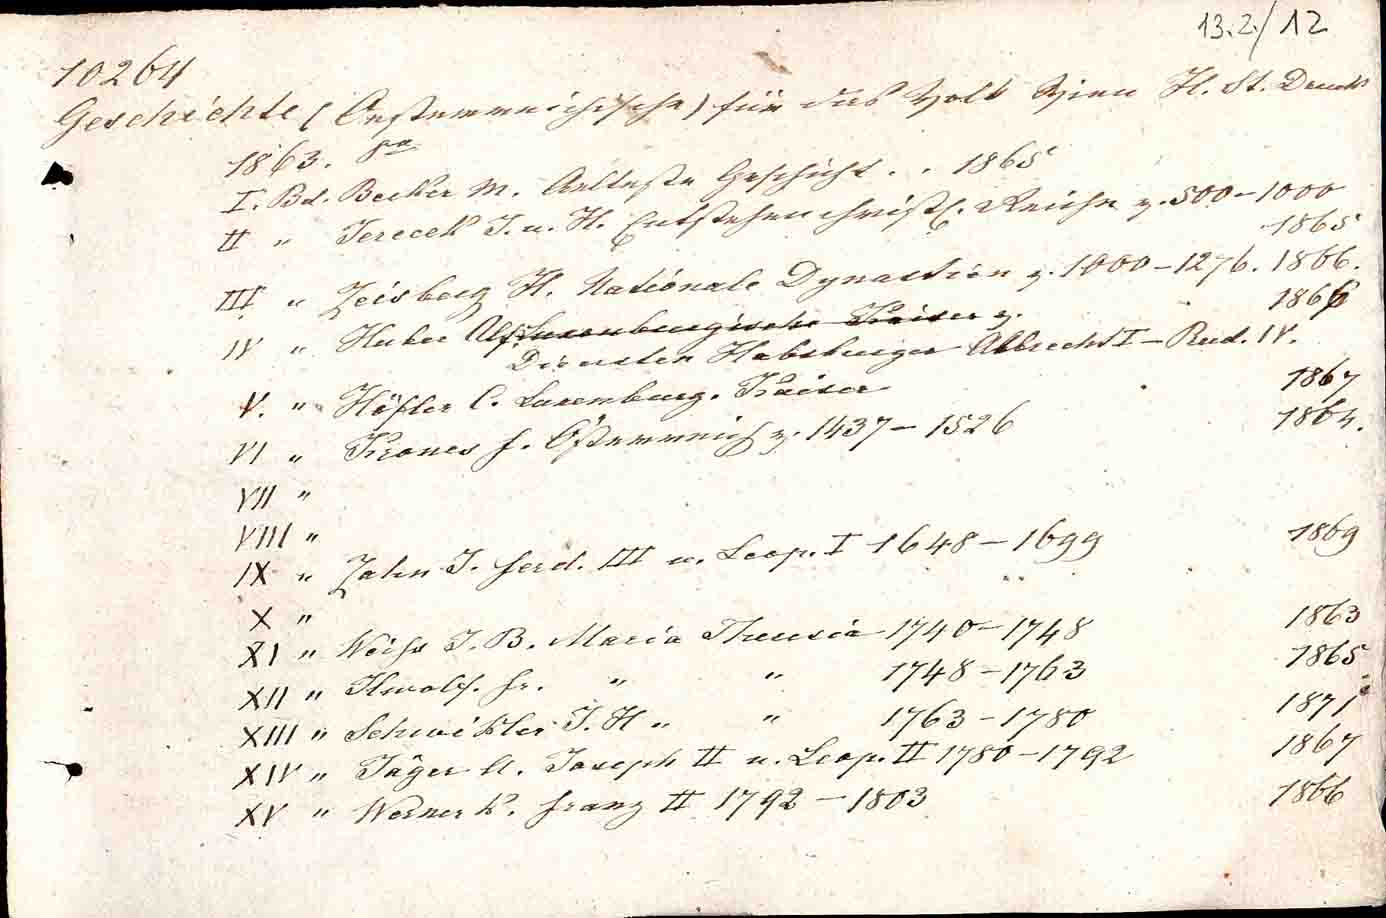 13.2./12
10264
Geschichte (Oesterreichische) für das Volk Wien H. St. Druck
1863. 8°
I. Bd. Becker M. Aelteste Geschicht . . 1865
II " Jirecek J. u. H. Entstehen christl. Reiche v. 500–1000
1865
III " Zeisberg H. Nationale Dynastien v. 1000–1276. 1866.
IV " Huber Alf. Luxenburgische Kaiser v. 1866
Habsburger Albrecht I – Rud. IV.
V. " Höfler C. Luxemburg. Kaiser 1867
VI " Krones F. Österreich v. 1437–1526 1864.
VII "
VIII "
IX " Zahn J. Ferd. III u. Leop. I 1648–1699 1869
X "
XI " Weiss J. B. Maria Theresia 1740–1748 1863
XII " Fr. " " 1748–1763 1865
XIII " Schwikler J. H " " 1763–1780 1871
XIV " Jäger A. Joseph II u. Leop. II 1780–1792 1867
XV " Werner K. Franz II 1792–1803 1866